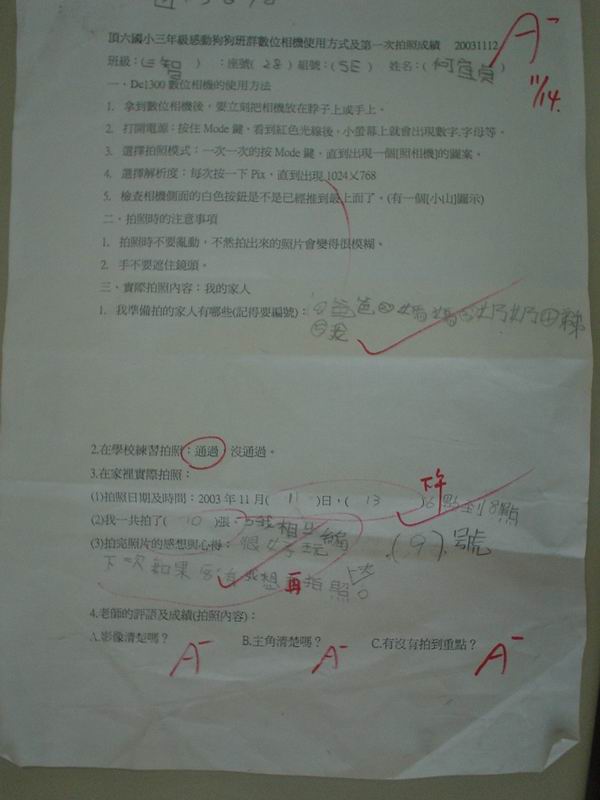 頂六國小三年級感動狗狗班群數位相機使用方式及第一次拍照成績 20031112
A-
11/14.
班級：(三智) ：座號(28) 組號：(5E) 姓名：(何宜貞)
一、Dc1300 數位相機的使用方法
1. 拿到數位相機後，要立刻把相機放在脖子上或手上。
2. 打開電源：按住 Mode 鍵，看到紅色光線後，小螢幕上就會出現數字,字母等。
3. 選擇拍照模式：一次一次的按 Mode 鍵，直到出現一個[照相機]的圖案。
4. 選擇解析度：每次按一下 Pix，直到出現 1024╳768
5. 檢查相機側面的白色按鈕是不是已經推到最上面了。(有一個[小山]圖示)
二、拍照時的注意事項
1. 拍照時不要亂動，不然拍出來的照片會變得很模糊。
2. 手不要遮住鏡頭。
三、實際拍照內容：我的家人
1. 我準備拍的家人有哪些(記得要編號)：①爸爸②媽媽③奶奶④弟弟
⑤我
2.在學校練習拍照：通過 沒通過。
3.在家裡實際拍照：
下午
(1)拍照日期及時間：2003 年 11 月( 11 )日，( 13 )6點至18點
(2)我一共拍了( 10 )張，我相片編(9)號
(3)拍完照片的感想與心得：很好玩
下次如果有我想再拍照。
4.老師的評語及成績(拍照內容)：
A.影像清楚嗎？ B.主角清楚嗎？ C.有沒有拍到重點？
A- A- A-